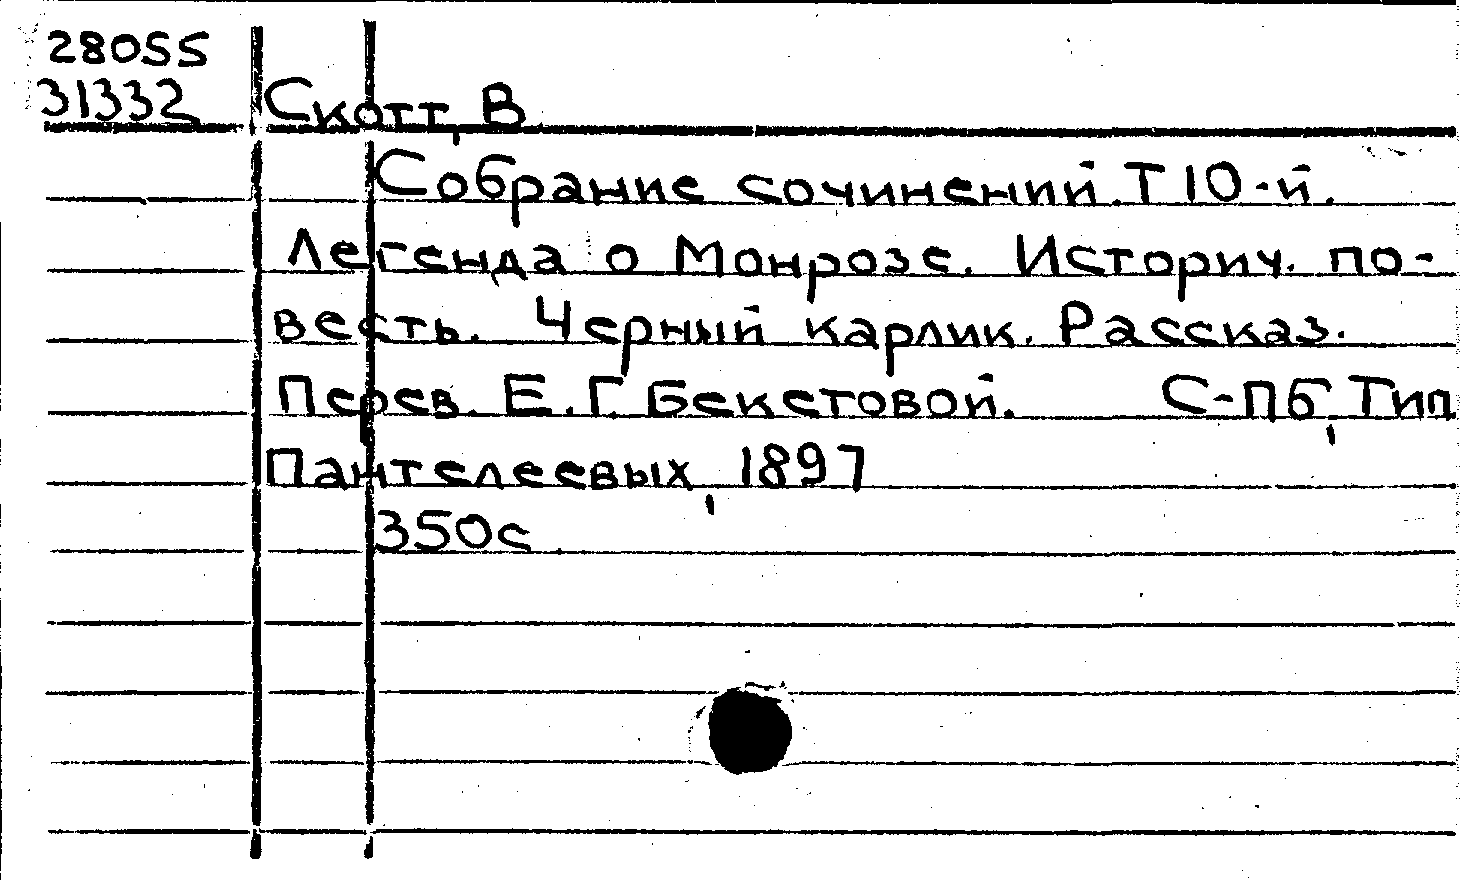 28055
31332 Скотт, В
Собрание сочинений. Т 10-й.
Легенда о Монрозе. Историч. по-
весть. Черный карлик. Рассказ.
Перев. Е. Г. Бекетовой. С-ПБ, Тип
Пантелеевых, 1897
350с